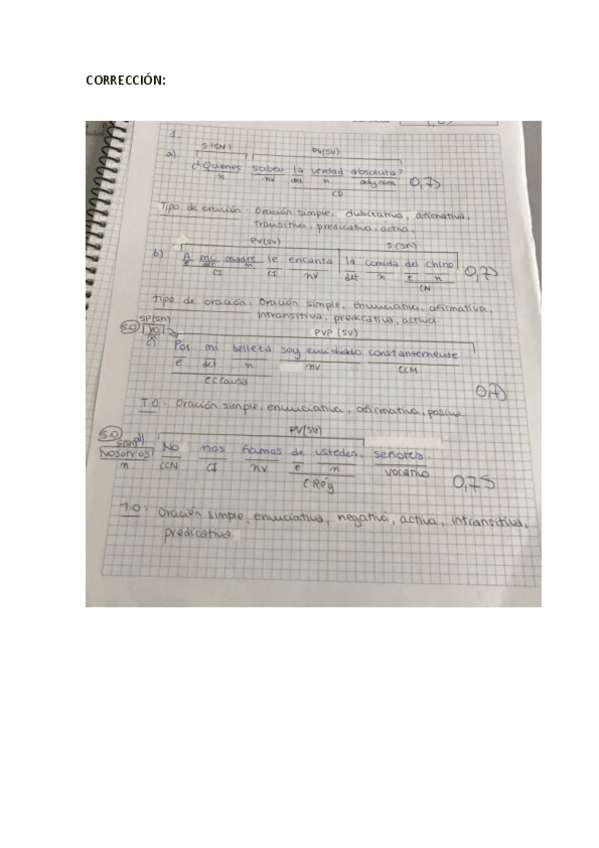 CORRECCIÓN:
1.
S(SN) PV(SV)
a) ¿Quienes saben la verdad absoluta? 0,75
n nv det n adynom
CD
Tipo de oración: Oración simple, dubitativa, afirmativa,
transitiva, predicativa, activa.
PV(SV) S(SN)
b) A mi madre le encanta la comida del chino 0,75
e det n nv det n e n
CI CI CN
Tipo de oración: Oración simple, enunciativa, afirmativa,
intransitiva, predicativa, activa.
S.O yo PVP (SV)
c) Por mi belleza soy envidiado constantemente
e det n nv CCM
CCCausa
T.O: Oración simple, enunciativa, afirmativa, pasiva
S.O PV(SV)
d) Nosotros No nos fiamos de ustedes, señores.
n CCN CI nv e n vocativo 0,75
C Rég
T.O: Oración simple, enunciativa, negativa, activa, intransitiva,
predicativa.